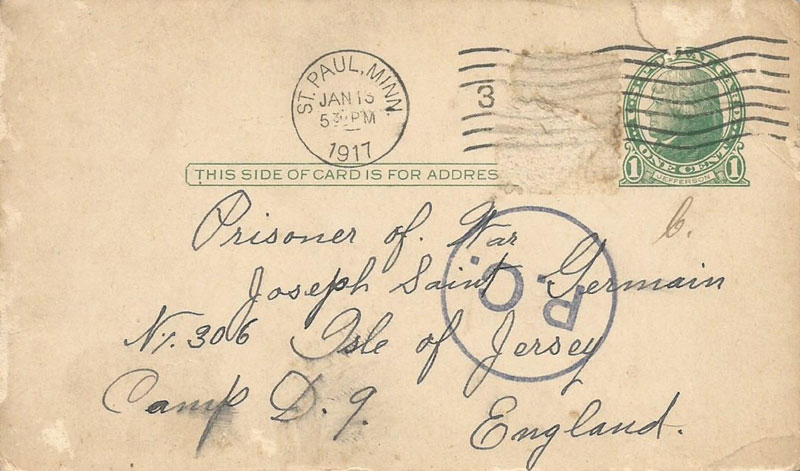 ST. PAUL, MINN.
JAN 13
530 PM
1917
3
U.S. POSTAL CARD
ONE CENT
1 JEFFERSON 1
THIS SIDE OF CARD IS FOR ADDRES
6.
Prisoner of. War
P.C.
Joseph Saint Germain
No. 306 Isle of Jersey
Camp D. 9.
England.